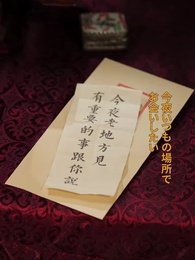 今夜老地方見
有重要的事跟你說
今夜いつもの場所で
お会いしたい